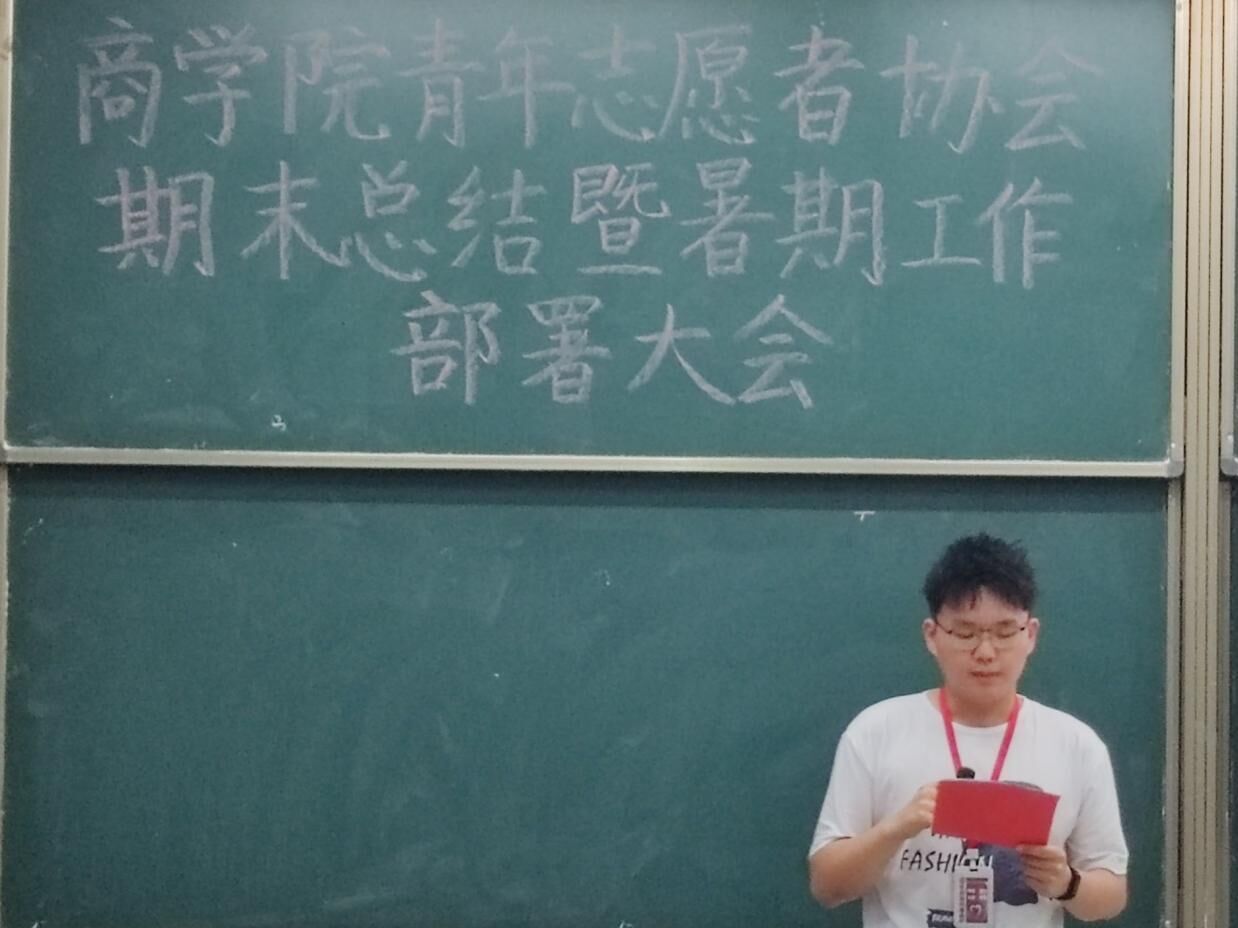 商学院青年志愿者协会
期末总结暨暑期工作
部署大会
FASHI